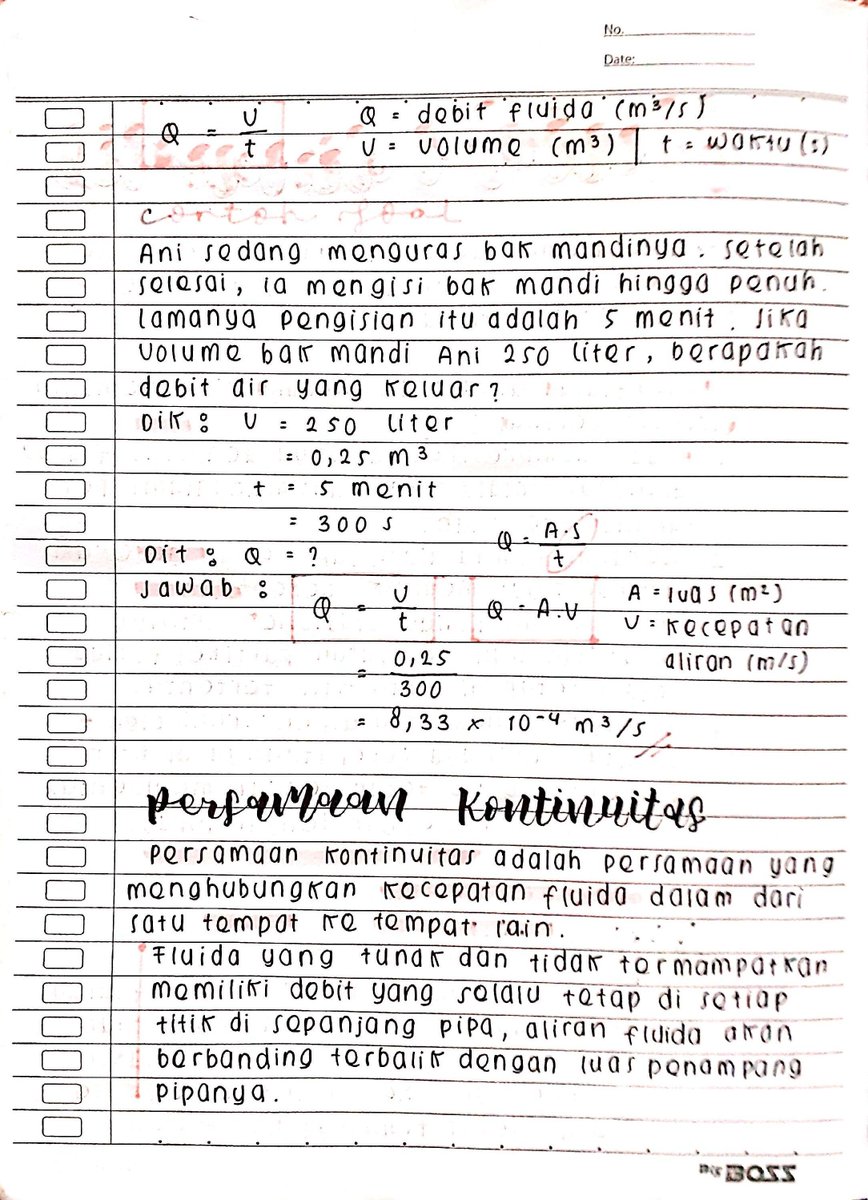 No.
Date:
Q = V/t Q = debit fluida (m³/s)
V = volume (m³) | t = waktu (s)
contoh soal
Ani sedang menguras bak mandinya. setelah
selesai, ia mengisi bak mandi hingga penuh.
lamanya pengisian itu adalah 5 menit. Jika
volume bak mandi Ani 250 liter, berapakah
debit air yang keluar?
Dik : V = 250 liter
= 0,25 m³
t = 5 menit
= 300 s
Q = A.S/t
Dit : Q = ?
Jawab : Q = V/t Q = A.V A = luas (m²)
V = kecepatan
aliran (m/s)
= 0,25/300
= 8,33 x 10⁻⁴ m³/s
Persamaan Kontinuitas
persamaan kontinuitas adalah persamaan yang
menghubungkan kecepatan fluida dalam dari
satu tempat ke tempat lain.
Fluida yang tunak dan tidak termampatkan
memiliki debit yang selalu tetap di setiap
titik di sepanjang pipa, aliran fluida akan
berbanding terbalik dengan luas penampang
pipanya.
BOSS